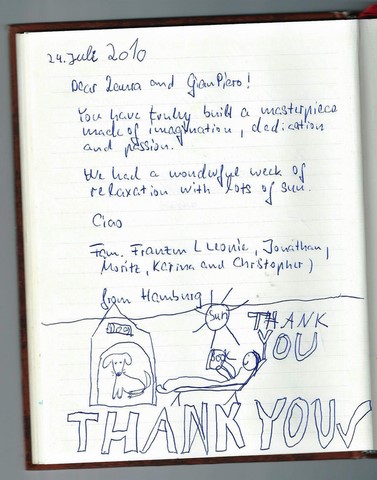 24. Juli 2010
Dear Laura and GianPiero!
You have truly built a masterpiece
made of imagination, dedication
and passion.
We had a wonderful week of
relaxation with lots of sun.
Ciao
Fam. Franzen (Leonie, Jonathan,
Moritz, Karina and Christopher)
from Hamburg
Sun
THANK
YOU
Dog
Book
THANK YOU